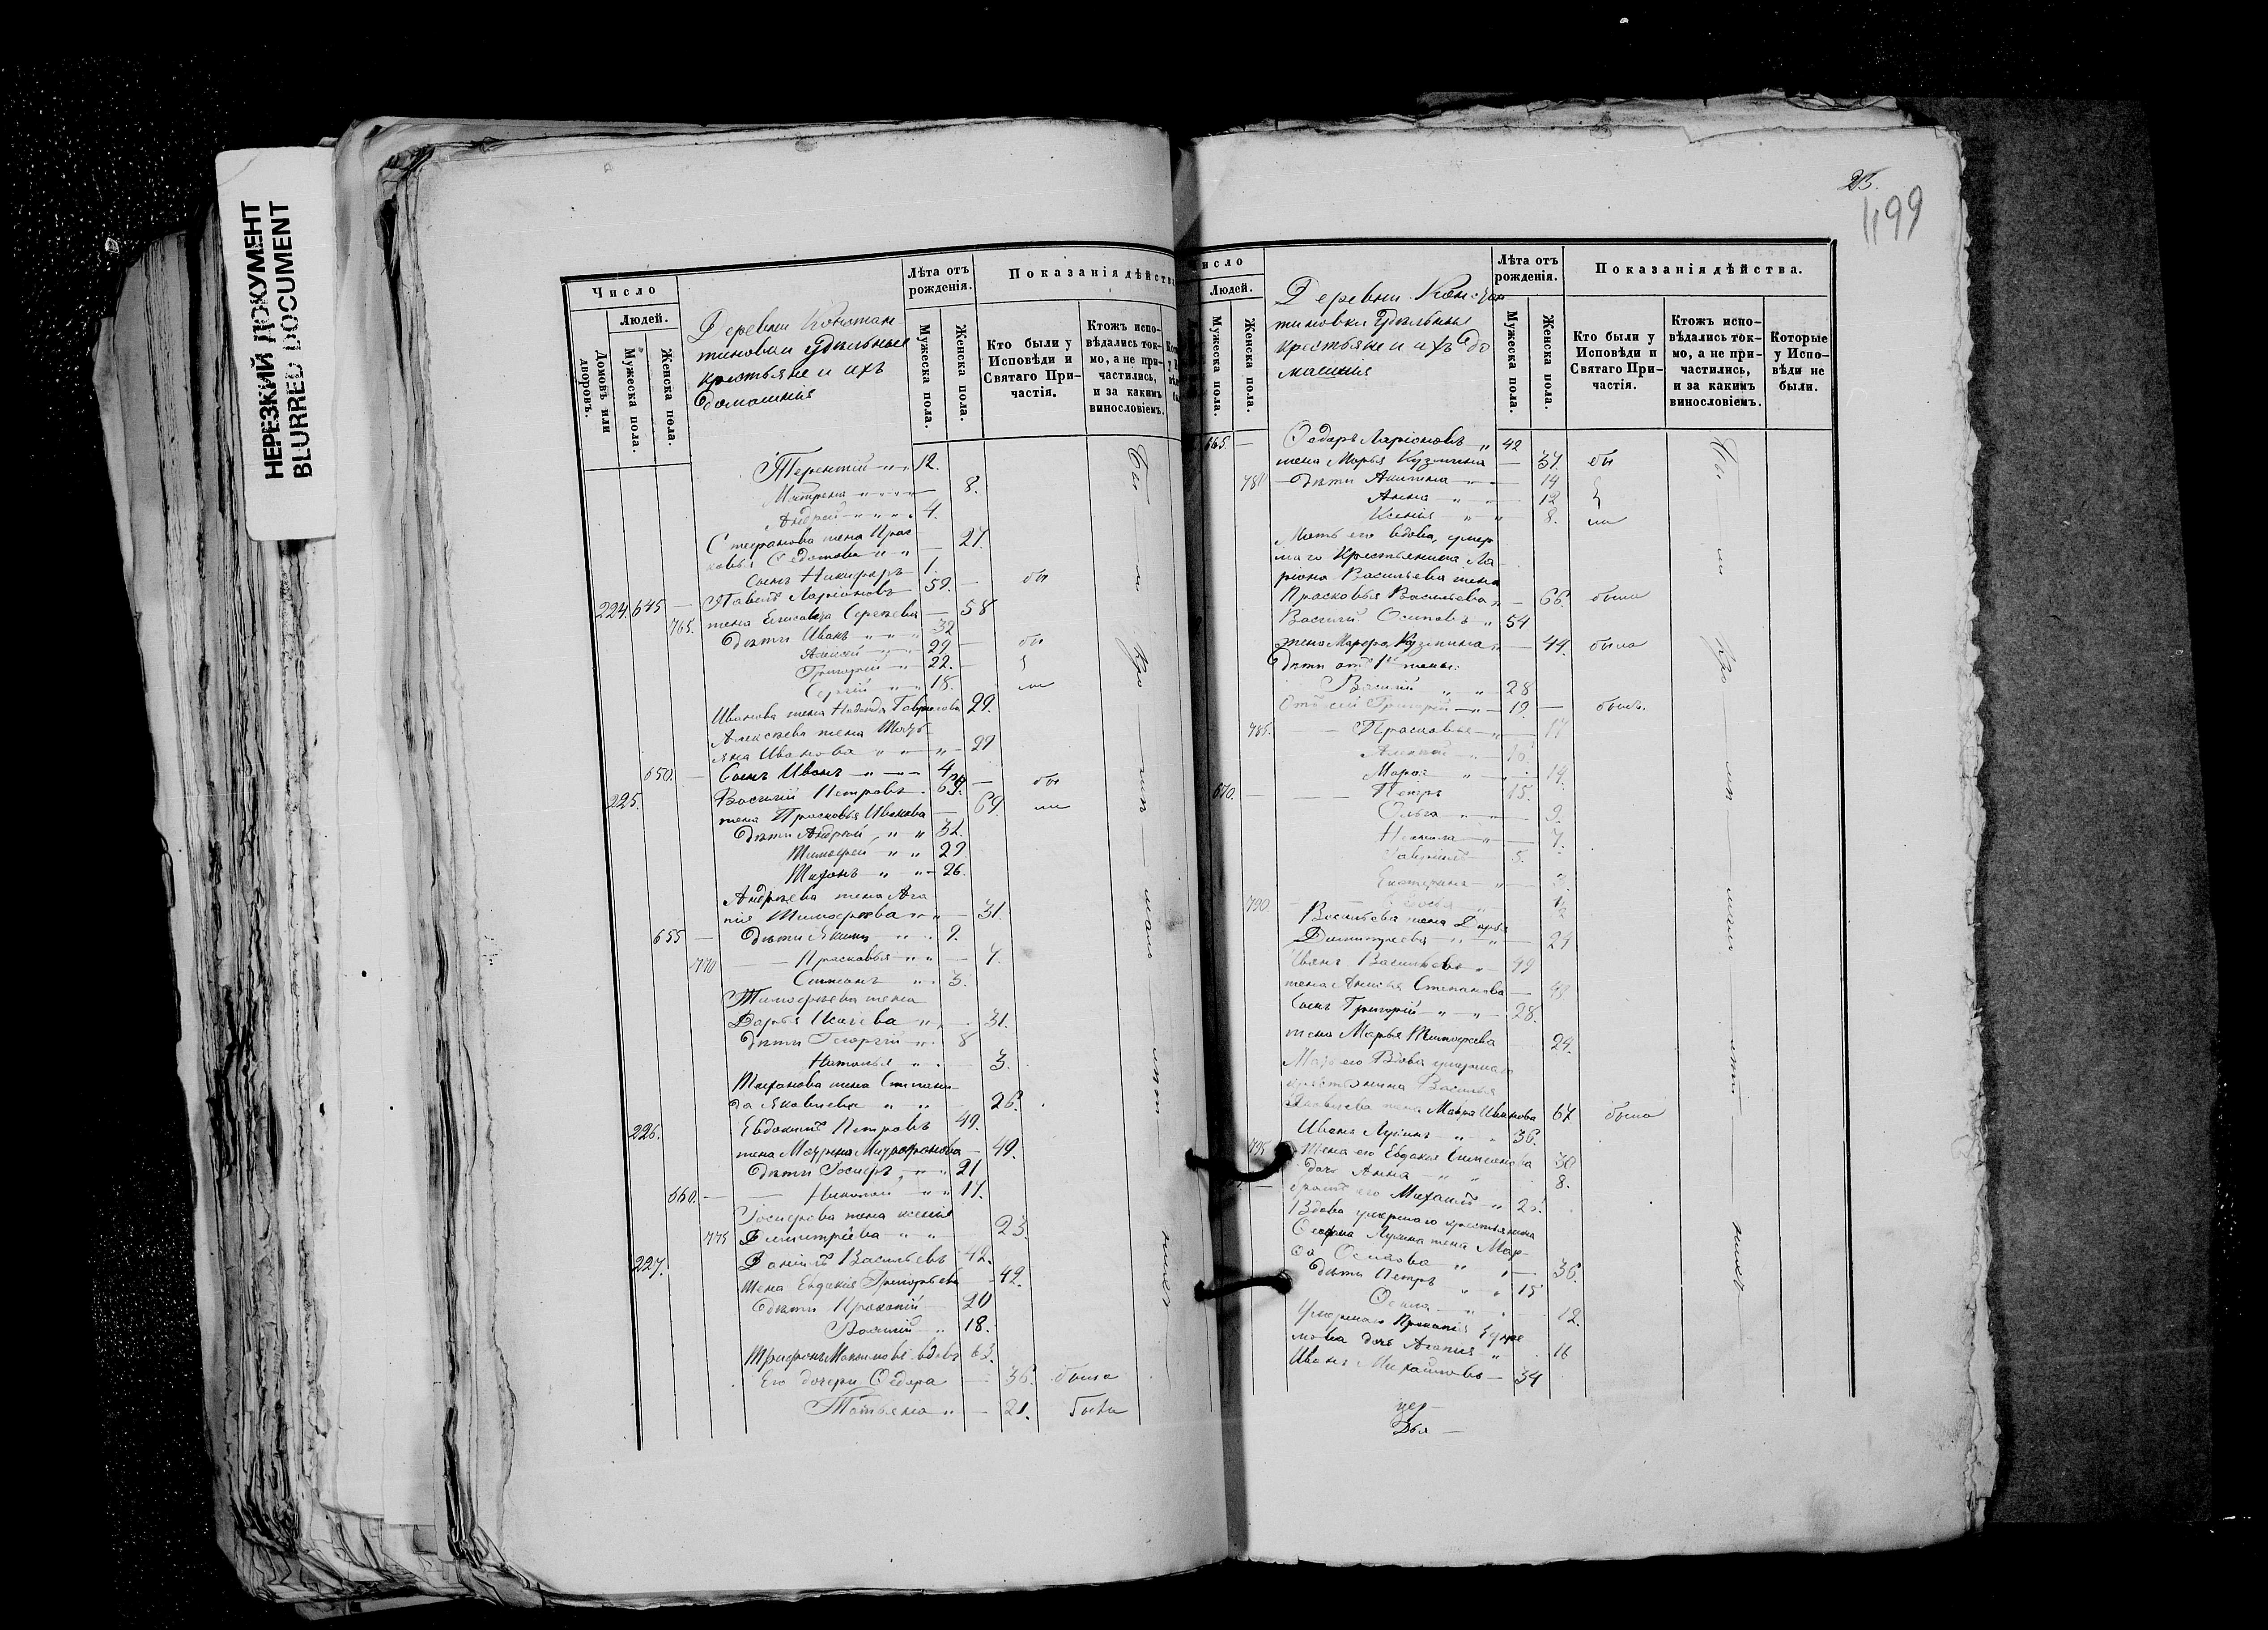 НЕРЕЗКИЙ ДОКУМЕНТ
BLURRED DOCUMENT
Число
Людей.
Домовъ или дворовъ.
Мужеска пола.
Женска пола.
Деревни Констан-
тиновки удѣльные
крестьяне и ихъ
домашнія
Лѣта отъ рожденія.
Мужеска пола.
Женска пола.
Показанія дѣйства
Кто были у Исповѣди и Святаго Причастія.
Ктожъ исповѣдались токмо, а не причастились, и за какимъ винословіемъ.
Терентій 12.
Матрена 8.
Андрей 4.
Стефанова жена Прас-
ковья Федотова 27.
Сынъ Никифоръ 1.
224 645 Павелъ Ларіоновъ 59. бы
765. жена Елисавета Сергеева 58
Дѣти Иванъ 32
Алексей 29 бы
Григорій 22.
Сергій 18. ли
Иванова жена Надежда Гаврилова 29.
Алексѣева жена Тать-
яна Иванова 29
650. Сынъ Иванъ 4
225. Василий Петровъ 69. бы
жена Прасковья Иванова 69. ли
Дѣти Андрей 32.
Тимофей 29
Тихонъ 26.
Андрѣева жена Ага
пія Тимофеева 31.
655 Дѣти Якимъ 9.
770 Прасковья 7.
Симеонъ 3.
Тимофѣева жена
Дарья Исаева 31.
Дѣти Георгій 8
Наталья 3.
Тихонова жена Степани-
да Яковлева 26.
226. Евдокимъ Петровъ 49.
жена Матрена Митрофанова 49.
Дѣти Іосифъ 21
660. Николай 17.
Іосифова жена Ксенія
775 Димитріева 23.
227. Даніилъ Васильевъ 42.
Жена Евдокія Григорьева 42.
Дѣти Прокопій 20
Василій 18.
Трифонъ Максимовъ вдовъ 63.
Его дочери Федора 36. была
Татьяна 21. была
25.
1199
Число
Людей.
Мужеска пола.
Женска пола.
Деревни Констан
тиновки удѣльные
крестьяне и ихъ до
машнія
Лѣта отъ рожденія.
Мужеска пола.
Женска пола.
Показанія дѣйства.
Кто были у Исповѣди и Святаго Причастія.
Ктожъ исповѣдались токмо, а не причастились, и за какимъ винословіемъ.
Которые у Исповѣди не были.
665. Федоръ Ларіоновъ 42
жена Марья Кузмина 37. бы
Дѣти 14
Анна 12
Ксенія 8. ли
Мать его вдова, умер
шаго Крестьянина Ла-
ріона Васильева жена
Прасковья Васильева 66. была
Василій Осиповъ 54
жена Марфа Кузмина 44. была
Дѣти отъ 1й жены:
Василій 28
Григорій 19. былъ.
785. Прасковья 17
Петръ 15.
670.
Ольга 9.
7.
Гавріилъ 5.
Екатерина
790.
Васильева жена Дарья
Димитреева 29
Иванъ Васильевъ 49
жена Степанова 49.
Сынъ Григорій 28.
жена Марья Тимофеева 24.
Мать его Вдова умершаго
крестьянина Василья
Яковлева жена Мавра Иванова 67 была
Иванъ Лукинъ 36.
795 Жена его Евдокія Симеонова 30
дочь Анна 8.
братъ его Михаилъ
Вдова умершаго крестьянина
Лукина жена Мар-
Осипова 36.
Дѣти Петръ 15
12.
Умершаго Прокопія
дочь Агапія 16
Иванъ Михайловъ 34